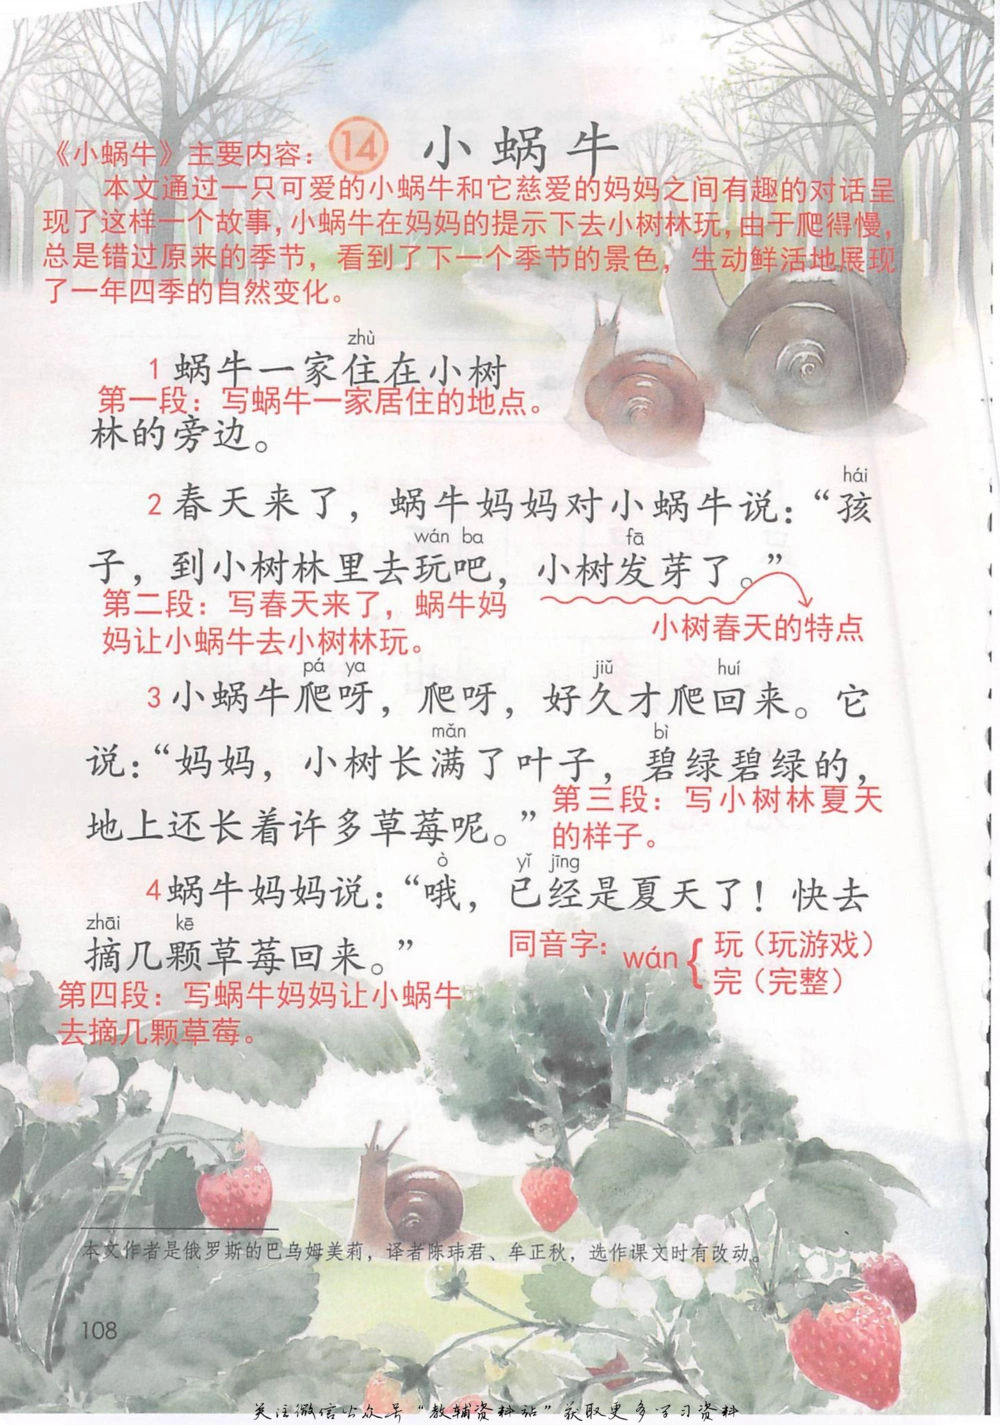 14 小蜗牛
《小蜗牛》主要内容：
本文通过一只可爱的小蜗牛和它慈爱的妈妈之间有趣的对话呈
现了这样一个故事，小蜗牛在妈妈的提示下去小树林玩，由于爬得慢，
总是错过原来的季节，看到了下一个季节的景色，生动鲜活地展现
了一年四季的自然变化。
zhù
1 蜗牛一家住在小树
第一段：写蜗牛一家居住的地点。
林的旁边。
hái
2 春天来了，蜗牛妈妈对小蜗牛说：“孩
wán ba fā
子，到小树林里去玩吧，小树发芽了。”
第二段：写春天来了，蜗牛妈
妈让小蜗牛去小树林玩。
小树春天的特点
pá ya jiǔ huí
3 小蜗牛爬呀，爬呀，好久才爬回来。它
mǎn bì
说：“妈妈，小树长满了叶子，碧绿碧绿的，
地上还长着许多草莓呢。”
第三段：写小树林夏天
的样子。
ò yǐ jīng
4 蜗牛妈妈说：“哦，已经是夏天了！快去
zhāi kē
摘几颗草莓回来。”
同音字：wán{玩（玩游戏）
完（完整）
第四段：写蜗牛妈妈让小蜗牛
去摘几颗草莓。
本文作者是俄罗斯的巴乌姆美莉，译者陈玮君、牟正秋，选作课文时有改动。
108
关注微信公众号“教辅资料站”获取更多学习资料